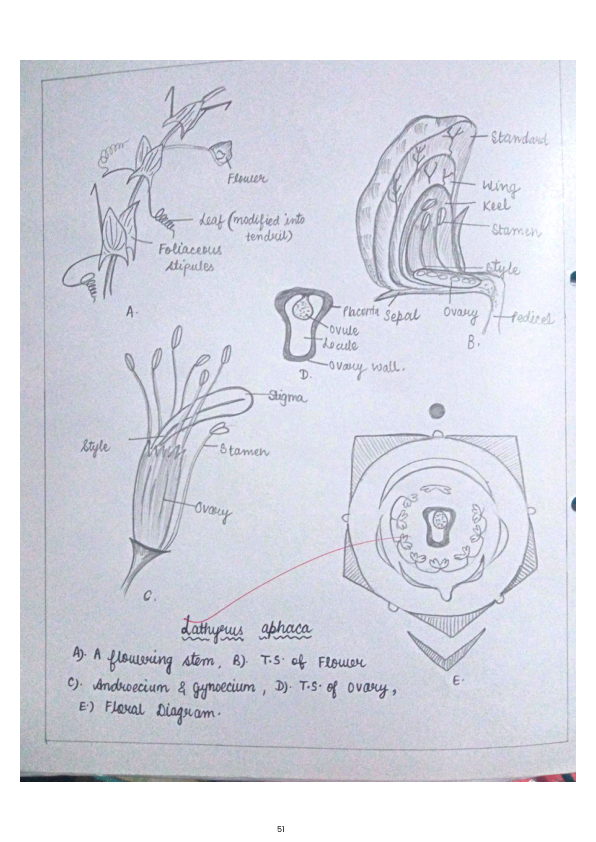 Flower
Leaf (modified into
tendril)
Foliaceous
stipules
A.
Standard
Wing
Keel
Stamen
Style
Ovary
Sepal
Pedicel
B.
Placenta
Ovule
Locule
Ovary wall.
D.
Stigma
Style
Stamen
Ovary
C.
E.
Lathyrus aphaca
A). A flowering stem, B). T.S. of Flower
C). Androecium & Gynoecium, D). T.S. of Ovary,
E.) Floral Diagram.
51